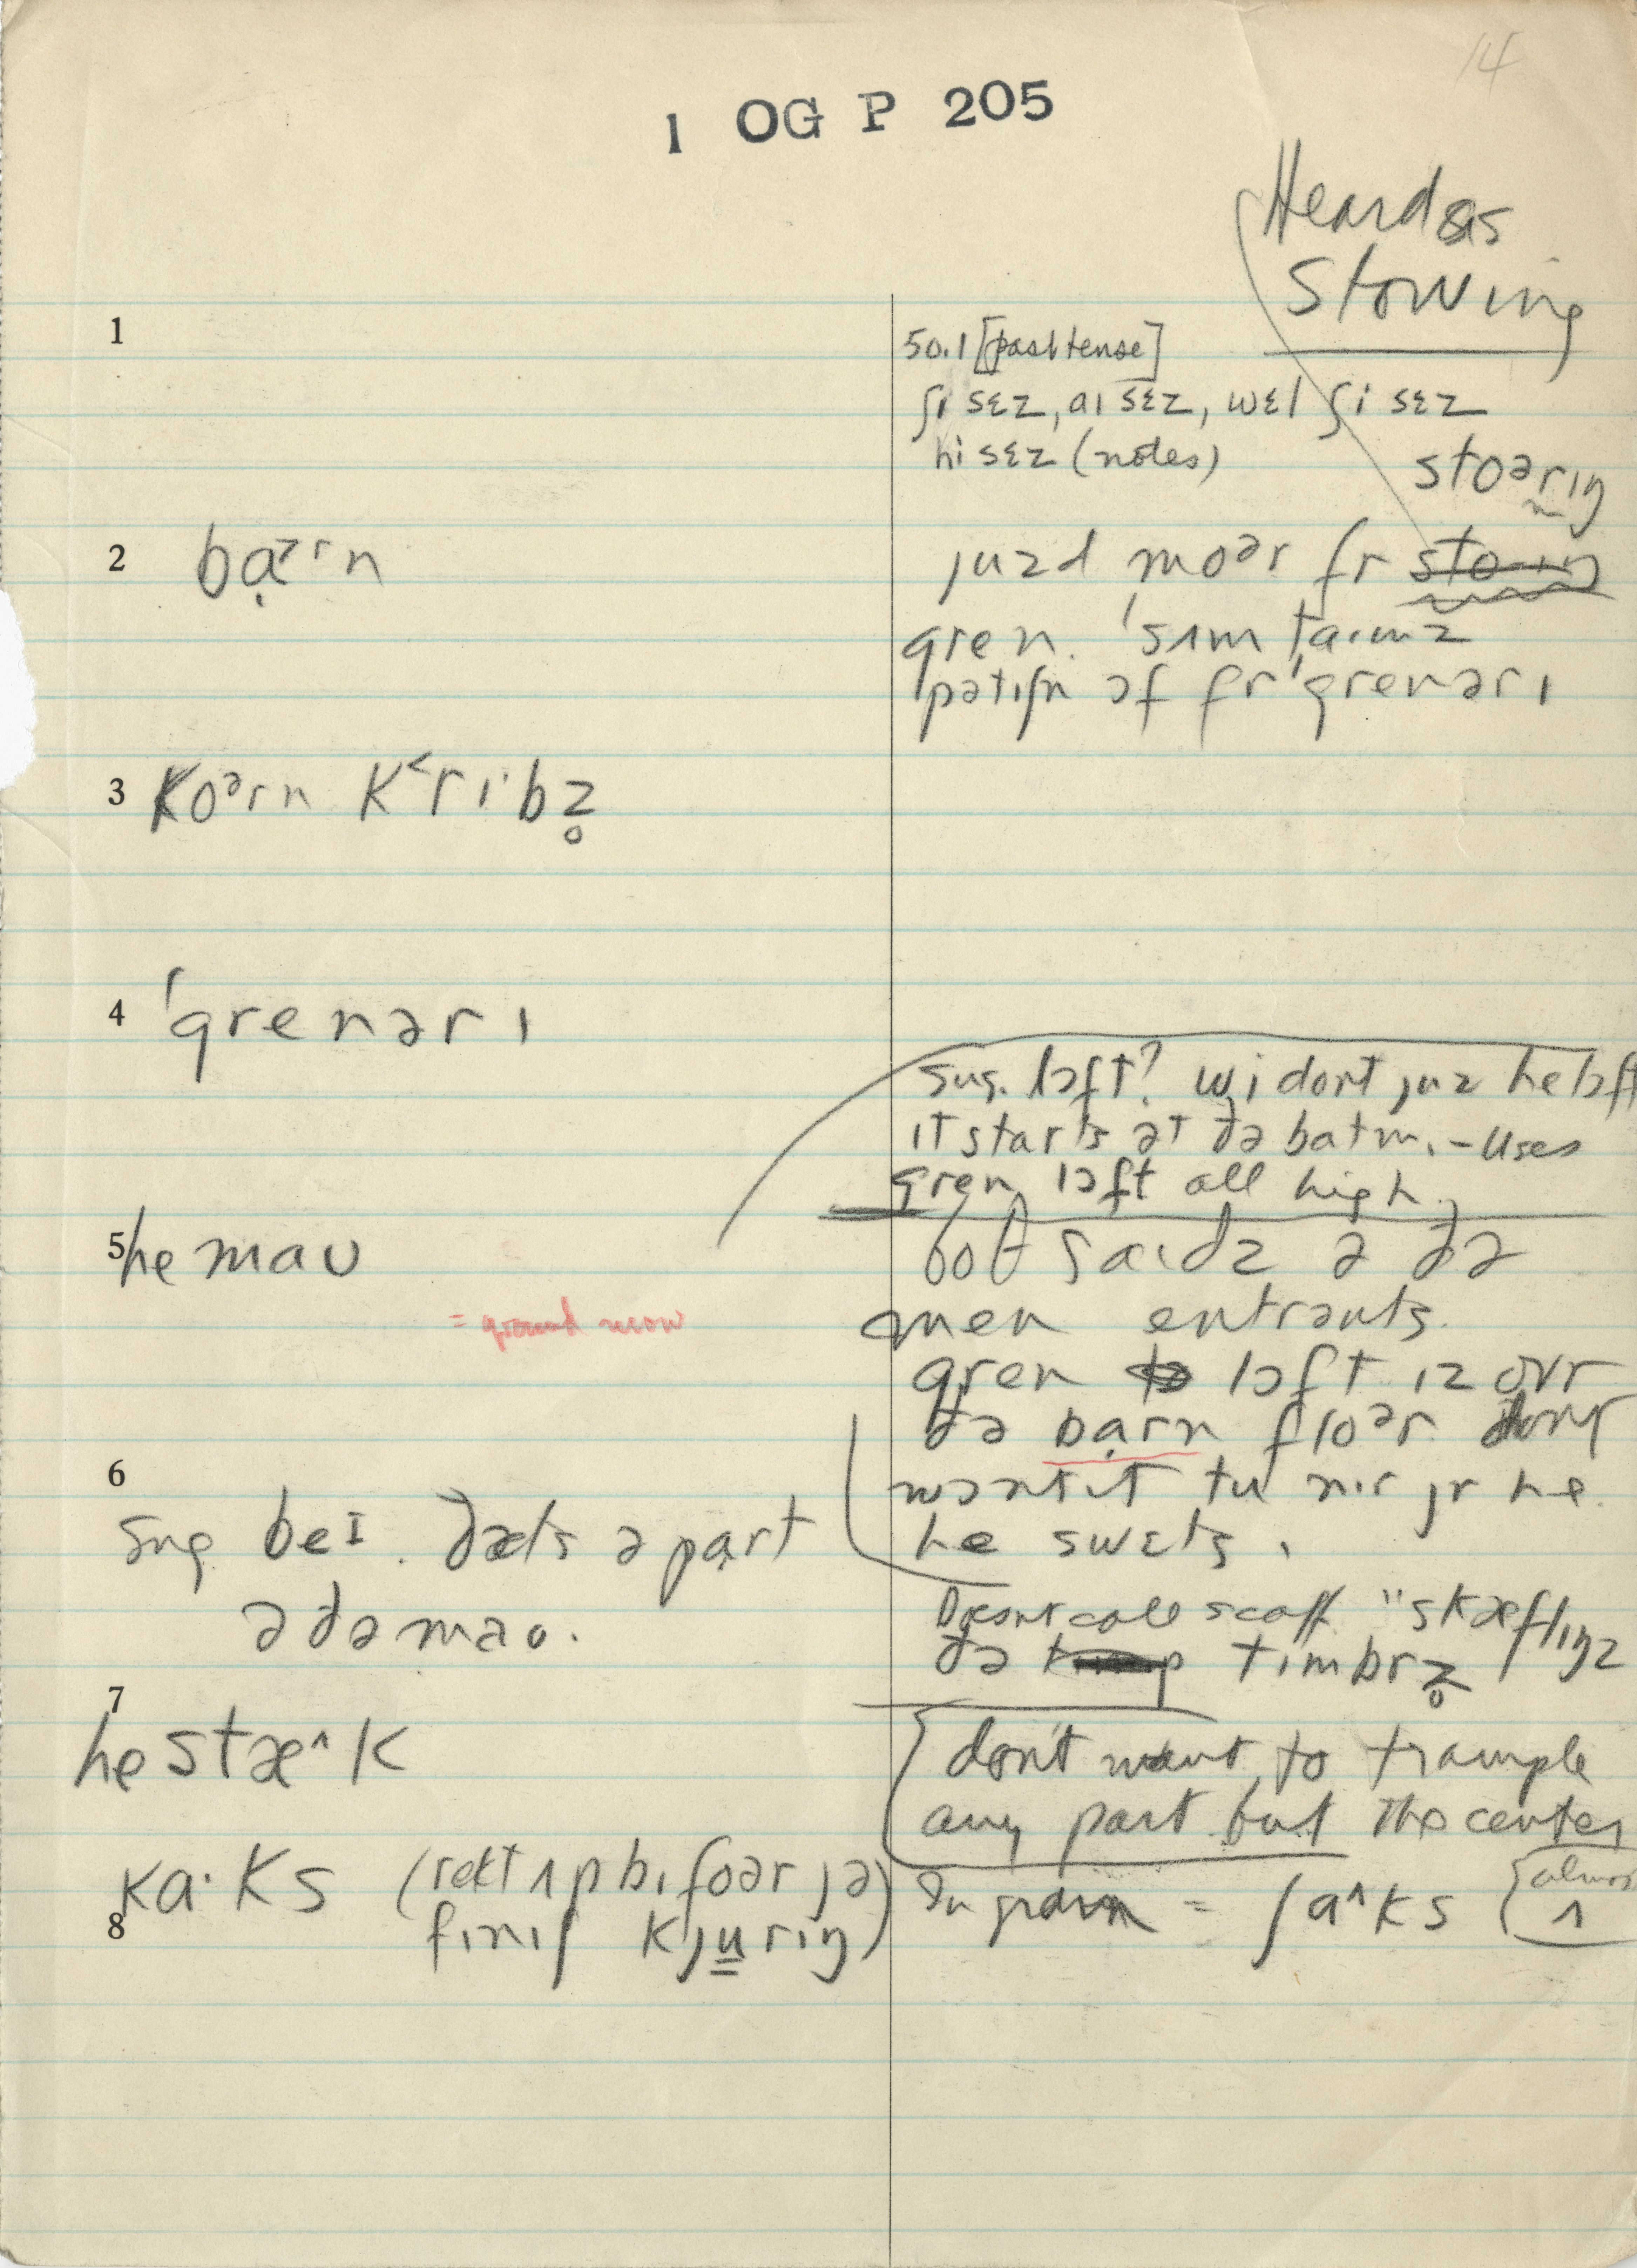 14
1 OG P 205
Heard as
Stowing
1
50.1 [past tense]
ʃi sɛz, aɪ sɛz, wɛl ʃi sɛz
hi sɛz (notes)
stoərɪŋ
2 bạ˃ˑrn
juzd moər fr
gren. ˈsʌmtaɪmz
patɪʃn ɔf fr ˈgrenərɪ
3 koᵊrn k˂rɪˑbz̥
4 ˈgrenərɪ
sug. lɔft? wi dont juz he lɔft
ɪt starts ət ðə batm. – uses
gren lɔft all high.
5 he maʊ
boθ saɪdz ə ðə
= ground mow
men entrənts.
gren lɔft ɪz ovr
ðə bạrn floᵊr. dont
6
wɔnt ɪt tu nɪr jr he.
sug. beɪ. ðæts ə pạrt
he swɛts.
ə ðə maʊ.
Doesnt call scaff "skæflɪŋz
ðə tɪmbrz̥
7
he stæ^k
don't want to trample
any part but the center
kaˑks (rɛkt ʌp bɪfoər jə
finɪʃ kjurɪŋ)
8
In grain = ʃa^ks {almost
ʌ